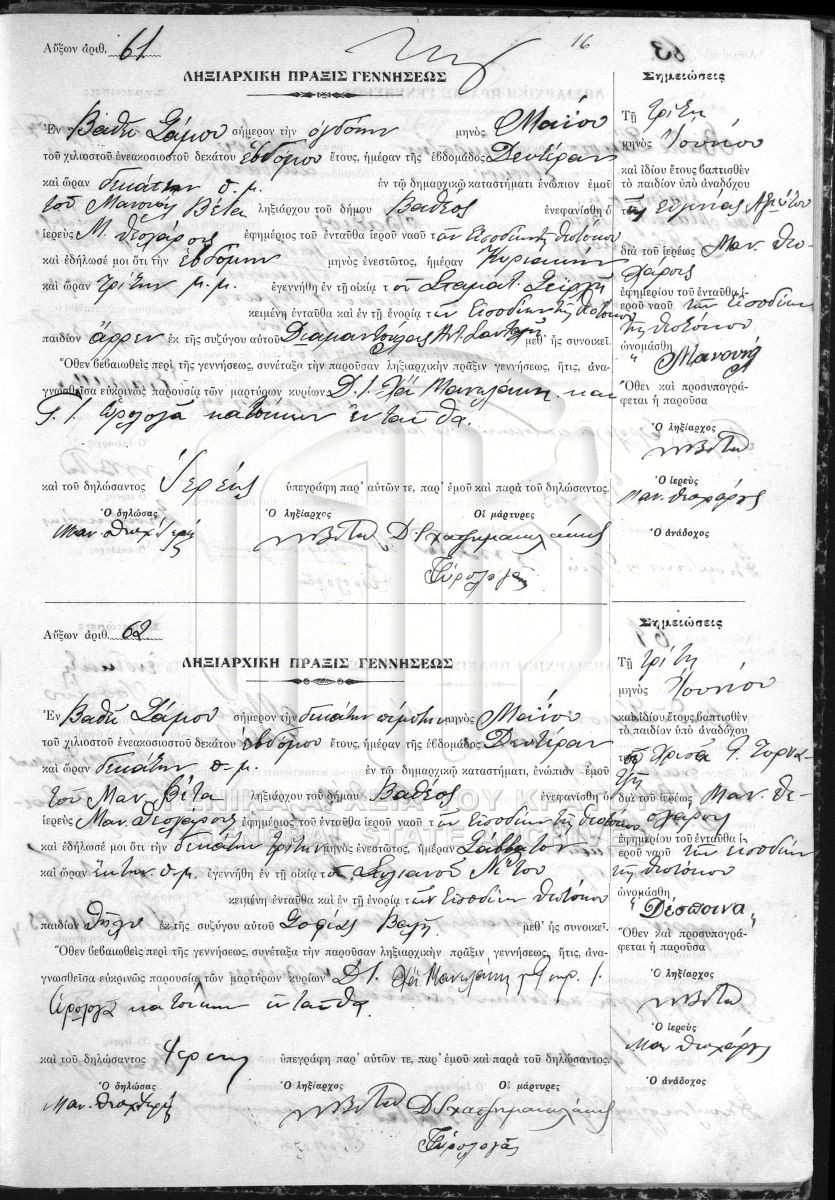 16
Αὔξων ἀριθ. 61
ΛΗΞΙΑΡΧΙΚΗ ΠΡΑΞΙΣ ΓΕΝΝΗΣΕΩΣ
Ἐν Βαθεῖ Σάμου σήμερον τὴν ὀγδόην μηνὸς Μαΐου
τοῦ χιλιοστοῦ ἐνεακοσιοστοῦ δεκάτου ἑβδόμου ἔτους, ἡμέραν τῆς ἑβδομάδος Δευτέραν
καὶ ὥραν δεκάτην π.μ. ἐν τῷ δημαρχικῷ καταστήματι ἐνώπιον ἐμοῦ
τοῦ Μανουὴλ Βέτα ληξιάρχου τοῦ δήμου Βαθέος ἐνεφανίσθη ὁ
ἱερεὺς Μ. Θεοχάρης ἐφημέριος τοῦ ἐνταῦθα ἱεροῦ ναοῦ τῶν Εἰσοδίων τῆς Θεοτόκου
καὶ ἐδήλωσέ μοι ὅτι τὴν ἑβδόμην μηνὸς ἐνεστῶτος, ἡμέραν Κυριακὴν
καὶ ὥραν τρίτην μ.μ. ἐγεννήθη ἐν τῇ οἰκίᾳ τοῦ Σταματ.
κειμένῃ ἐνταῦθα καὶ ἐν τῇ ἐνορίᾳ τῶν Εἰσοδίων τῆς Θεοτόκου
παιδίον ἄρρεν ἐκ τῆς συζύγου αὐτοῦ Διαμαντούλας μεθ' ἧς συνοικεῖ.
Ὅθεν βεβαιωθεὶς περὶ τῆς γεννήσεως, συνέταξα τὴν παροῦσαν ληξιαρχικὴν πρᾶξιν γεννήσεως, ἥτις, ἀνα-
γνωσθεῖσα εὐκρινῶς παρουσίᾳ τῶν μαρτύρων κυρίων Δ. Ι. Χ΄΄ Μανωλάκη καὶ
Γ. Ι. κατοίκων ἐνταῦθα.
καὶ τοῦ δηλώσαντος Ἱερέως ὑπεγράφη παρ' αὐτῶν τε, παρ' ἐμοῦ καὶ παρὰ τοῦ δηλώσαντος.
Ὁ δηλώσας Ὁ ληξίαρχος Οἱ μάρτυρες
Μαν. Θεοχ. Ἱερεὺς Μ Βέτας Δ. Ι. Χατζημανωλάκης
Σημειώσεις
Τῇ τρίτῃ
μηνὸς Ἰουνίου
καὶ ἰδίου ἔτους βαπτισθὲν
τὸ παιδίον ὑπὸ ἀναδόχου
τῆς
διὰ τοῦ ἱερέως Μαν. Θεο-
χάρους
ἐφημερίου τοῦ ἐνταῦθα ἱ-
εροῦ ναοῦ τῶν Εἰσοδίων
τῆς Θεοτόκου
ὠνομάσθη
" Μανουὴλ
Ὅθεν καὶ προσυπογρά-
φεται ἡ παροῦσα
Ὁ ληξίαρχος
Μ Βέτας
Ὁ ἱερεὺς
Μαν. Θεοχάρης
Ὁ ἀνάδοχος
Αὔξων ἀριθ. 62
ΛΗΞΙΑΡΧΙΚΗ ΠΡΑΞΙΣ ΓΕΝΝΗΣΕΩΣ
Ἐν Βαθεῖ Σάμου σήμερον τὴν δεκάτην πέμπτην μηνὸς Μαΐου
τοῦ χιλιοστοῦ ἐνεακοσιοστοῦ δεκάτου ἑβδόμου ἔτους, ἡμέραν τῆς ἑβδομάδος Δευτέραν
καὶ ὥραν δεκάτην π.μ. ἐν τῷ δημαρχικῷ καταστήματι, ἐνώπιον ἐμοῦ
τοῦ Μαν. Βέτα ληξιάρχου τοῦ δήμου Βαθέος ἐνεφανίσθη ὁ
ἱερεὺς Μαν. Θεοχάρης ἐφημέριος τοῦ ἐνταῦθα ἱεροῦ ναοῦ τῶν Εἰσοδίων τῆς Θεοτόκου
καὶ ἐδήλωσέ μοι ὅτι τὴν δεκάτην τρίτην μηνὸς ἐνεστῶτος, ἡμέραν Σάββατον
καὶ ὥραν ἕκτην π.μ. ἐγεννήθη ἐν τῇ οἰκίᾳ τοῦ Στυλιανοῦ
κειμένῃ ἐνταῦθα καὶ ἐν τῇ ἐνορίᾳ τῶν Εἰσοδίων Θεοτόκου
παιδίον θῆλυ ἐκ τῆς συζύγου αὐτοῦ Σοφίας μεθ' ἧς συνοικεῖ.
Ὅθεν βεβαιωθεὶς περὶ τῆς γεννήσεως, συνέταξα τὴν παροῦσαν ληξιαρχικὴν πρᾶξιν γεννήσεως, ἥτις, ἀνα-
γνωσθεῖσα εὐκρινῶς παρουσίᾳ τῶν μαρτύρων κυρίων Δ. Ι. Χ΄΄ Μανωλάκη
κατοίκων ἐνταῦθα.
καὶ τοῦ δηλώσαντος Ἱερέως ὑπεγράφη παρ' αὐτῶν τε, παρ' ἐμοῦ καὶ παρὰ τοῦ δηλώσαντος.
Ὁ δηλώσας Ὁ ληξίαρχος Οἱ μάρτυρες
Μαν. Θεοχ. Ἱερεὺς Μ Βέτας Δ Ι Χατζημανωλάκης
Σημειώσεις
Τῇ τρίτῃ
μηνὸς Ἰουνίου
καὶ ἰδίου ἔτους βαπτισθὲν
τὸ παιδίον ὑπὸ ἀναδόχου
διὰ τοῦ ἱερέως Μαν. Θε-
οχάρους
ἐφημερίου τοῦ ἐνταῦθα ἱ-
εροῦ ναοῦ τῶν Εἰσοδίων
τῆς Θεοτόκου
ὠνομάσθη
" Δέσποινα "
Ὅθεν καὶ προσυπογρά-
φεται ἡ παροῦσα
Ὁ ληξίαρχος
Μ Βέτας
Ὁ ἱερεὺς
Μαν Θεοχάρης
Ὁ ἀνάδοχος